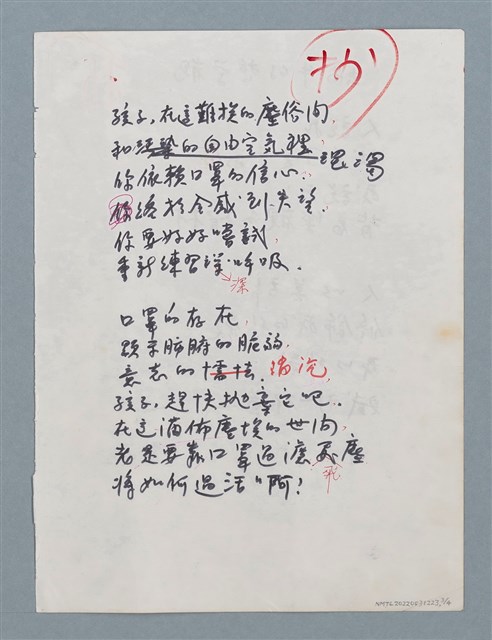 抄
孩子,在這難挨的塵俗間,
和污染的自由空氣裡, 混濁
你依賴口罩的信心,
終於令感到失望,
你要好好嚐試,
重新練習深呼吸.
深
口罩的存在,
顯示肺腑的脆弱,
意志的 消沉,
孩子,趕快拋棄它吧.
在這滿佈塵埃的世間,
老是要靠口罩過濾飛塵
飛
將如何過活啊?
NMTL20220031223,